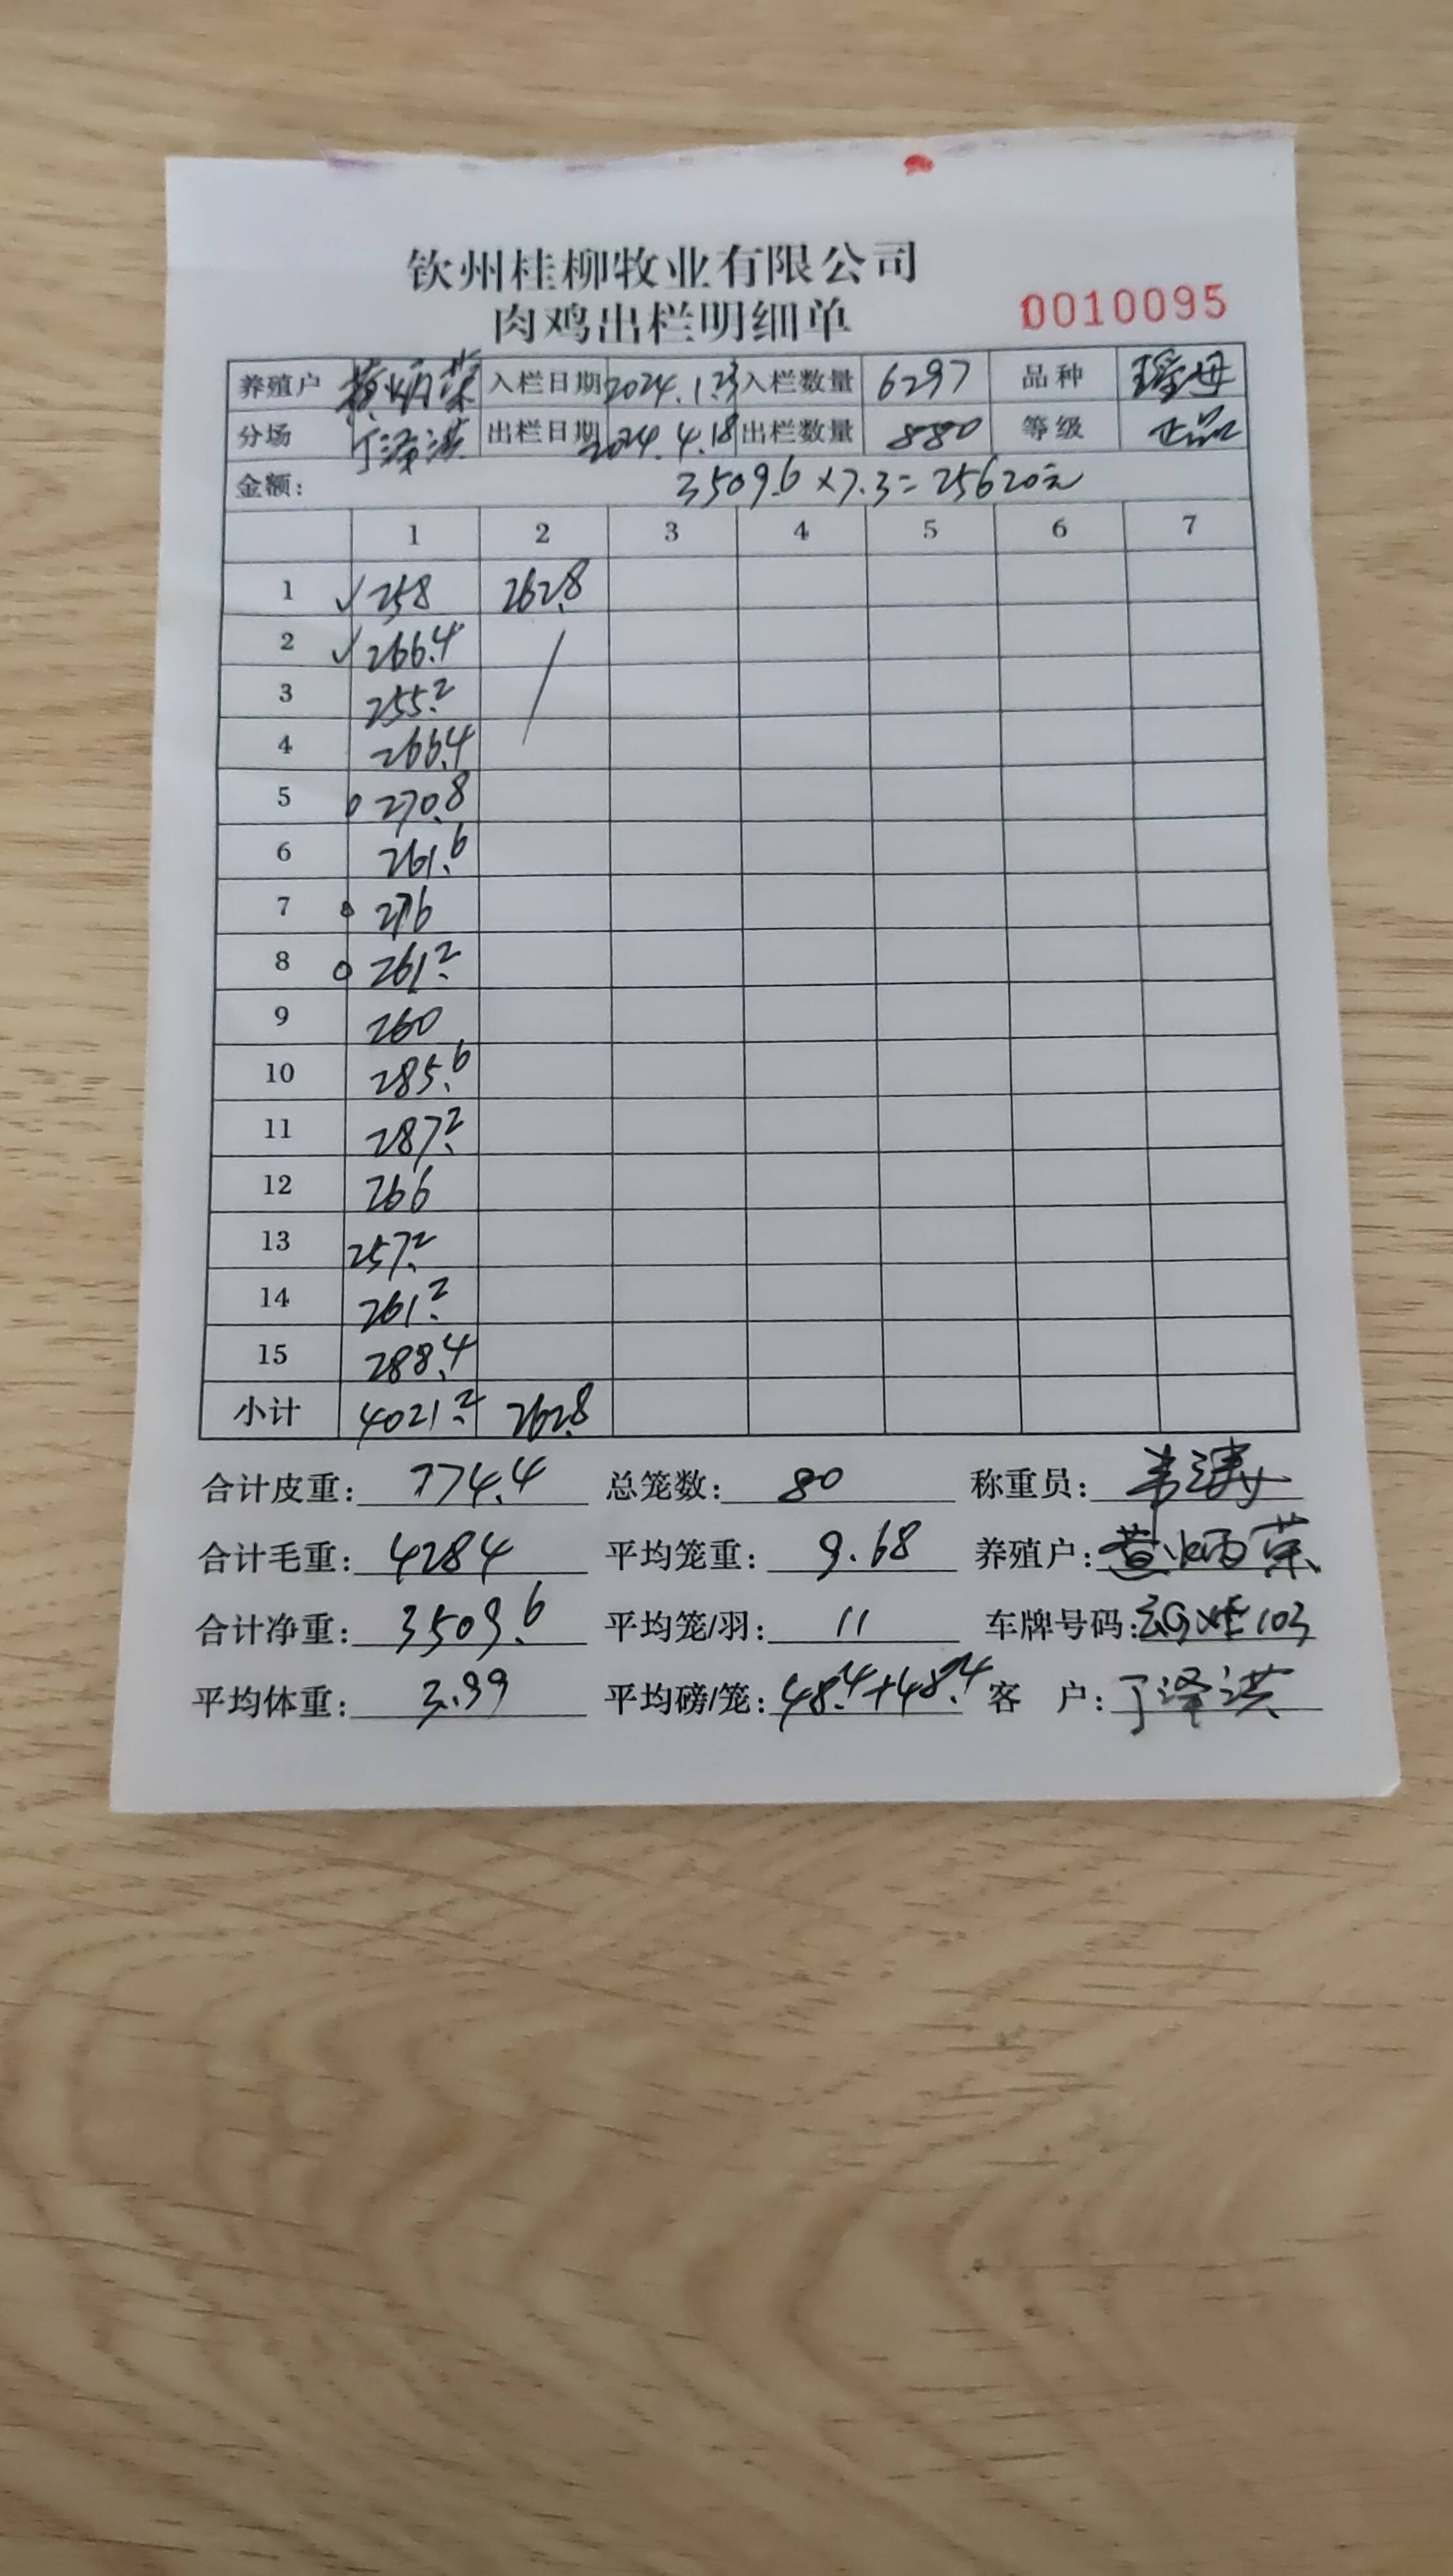 钦州桂柳牧业有限公司
肉鸡出栏明细单
0010095
养殖户 黄炳荣 入栏日期 2024.1.23 入栏数量 6297 品种 瑶母
分场 丁泽洪 出栏日期 2024.4.18 出栏数量 880 等级 正品
金额: 3509.6×7.3=25620元
1 2 3 4 5 6 7
1 ✓258 262.8
2 ✓266.4
3 255.2
4 266.4
5 270.8
6 261.6
7 276
8 261.2
9 260
10 285.6
11 287.2
12 266
13 257.2
14 261.2
15 288.4
小计 4021.2 262.8
合计皮重: 774.4 总笼数: 80 称重员:
合计毛重: 4284 平均笼重: 9.68 养殖户: 黄炳荣
合计净重: 3509.6 平均笼/羽: 11 车牌号码:
平均体重: 3.99 平均磅/笼: 48.4+48.4 客 户: 丁泽洪